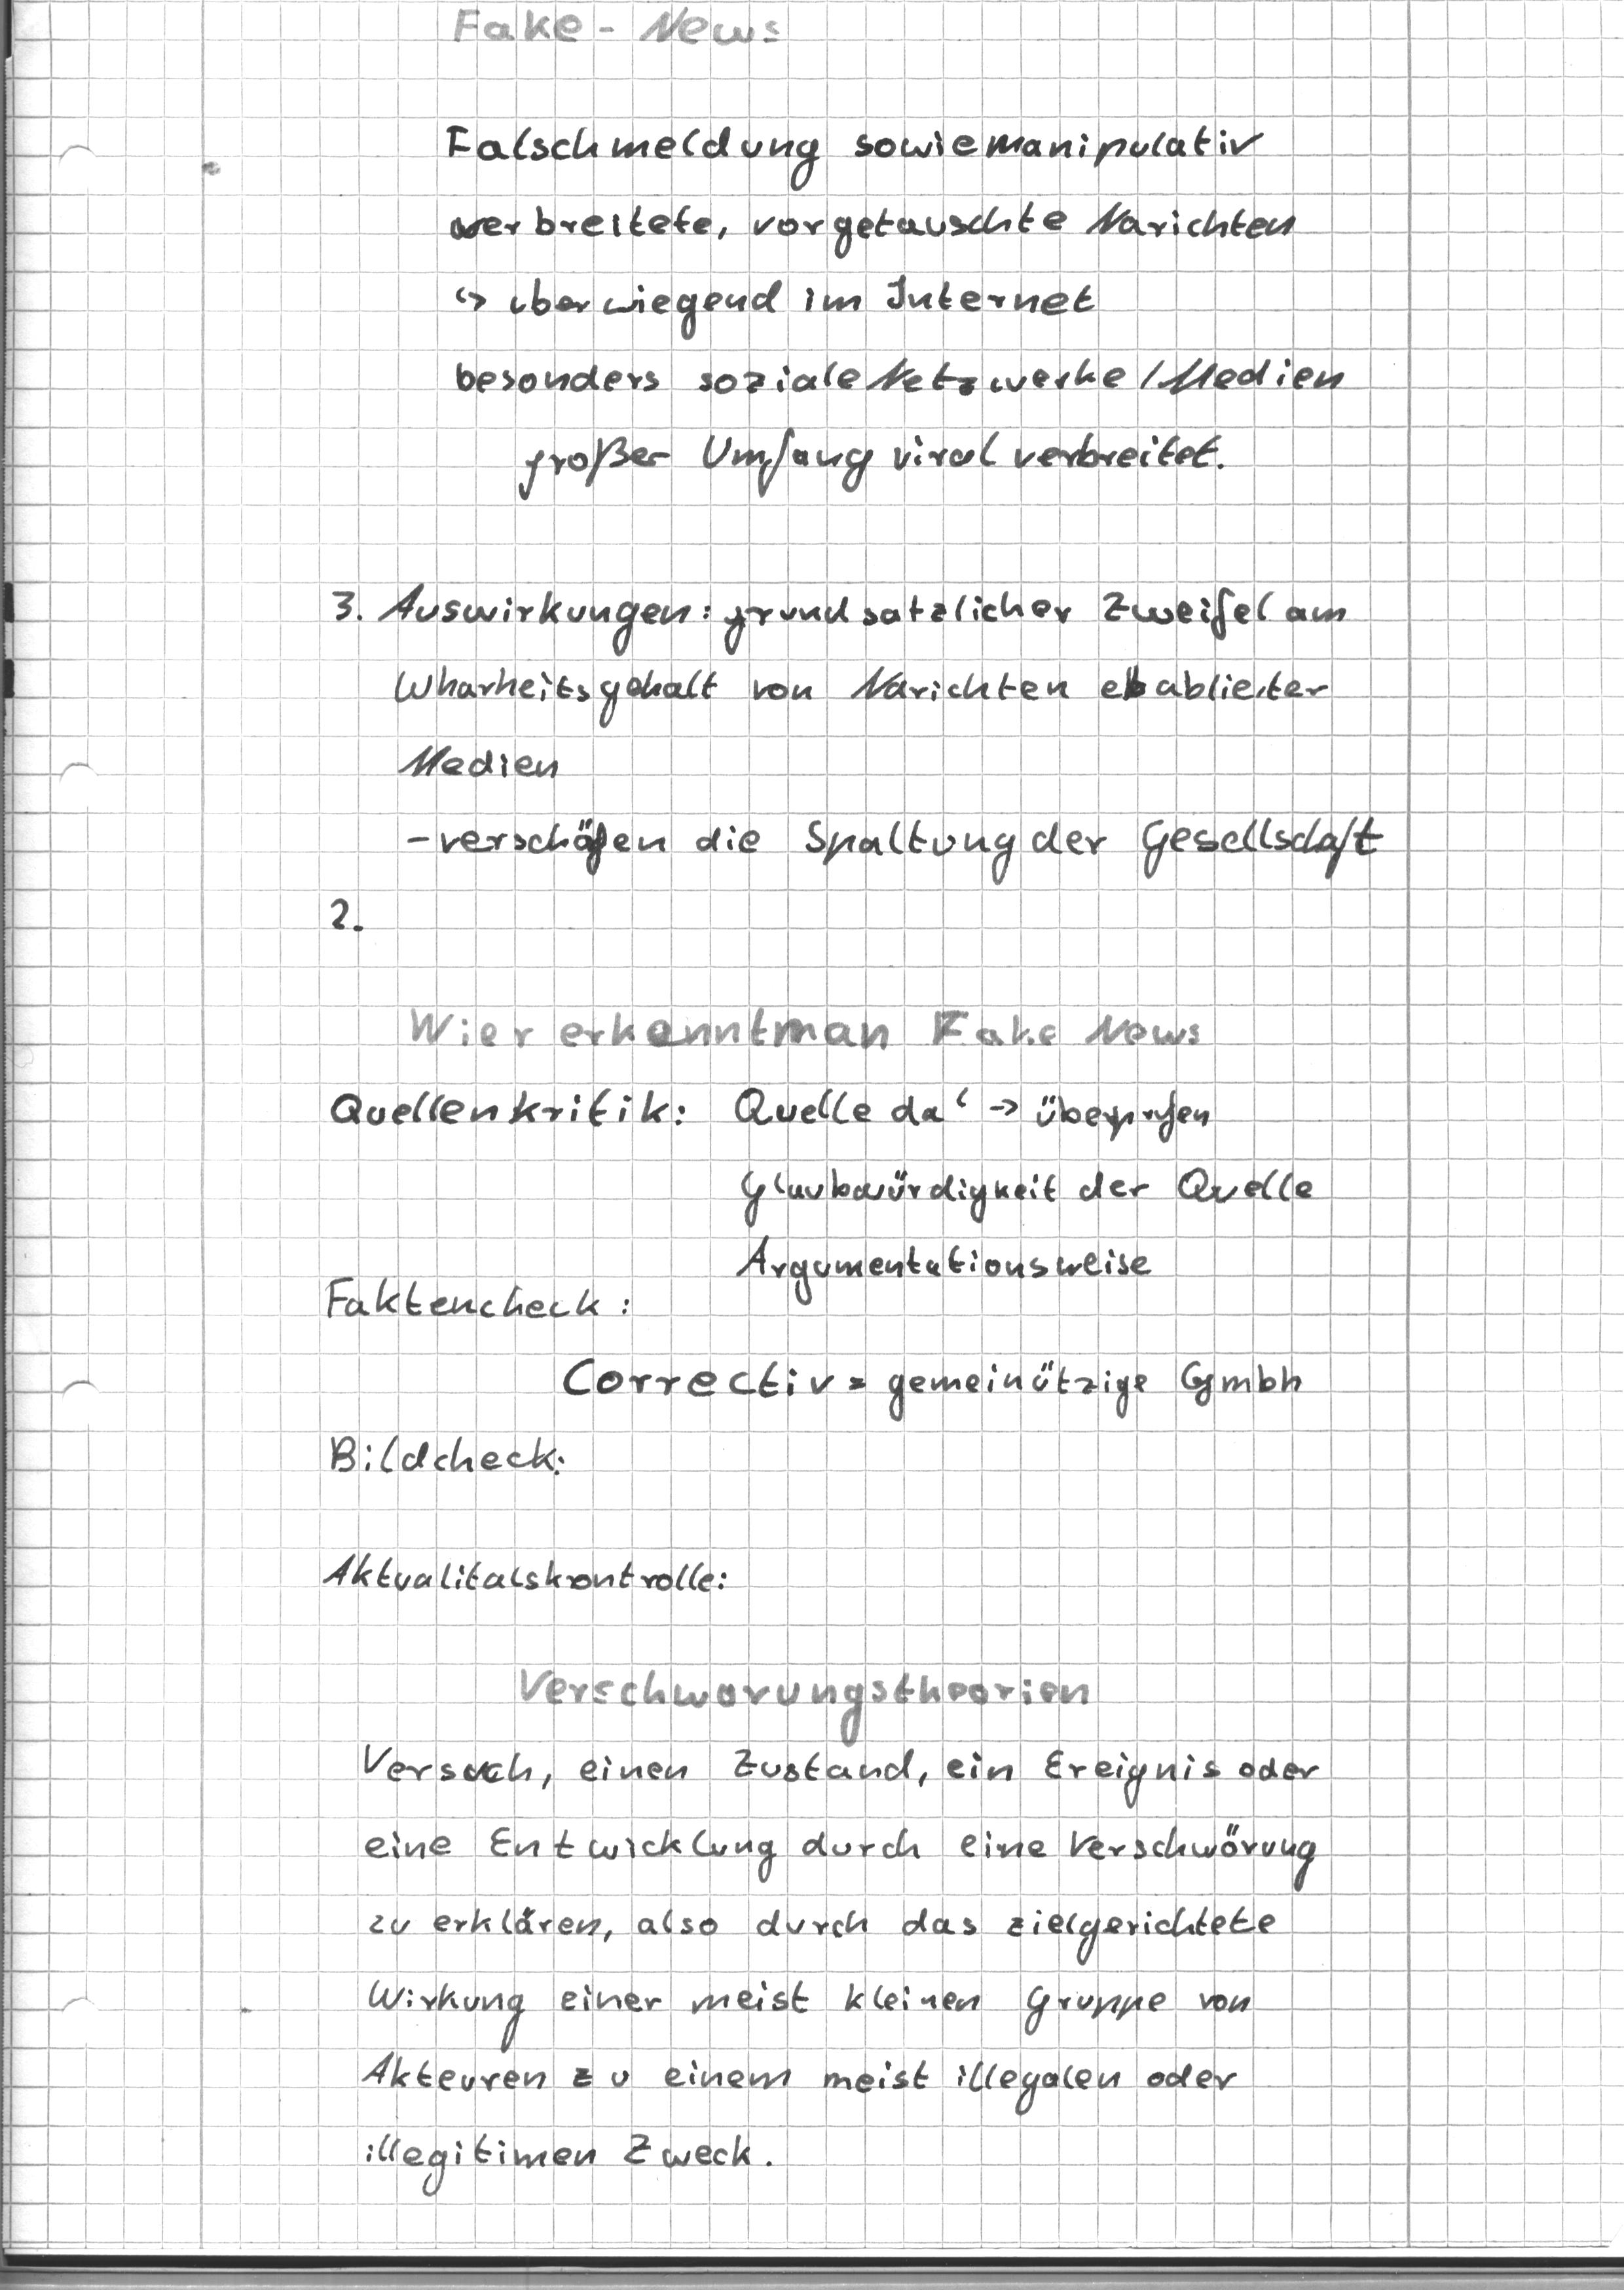 Fake - News
Falschmeldung sowie manipulativ
verbreitete, vorgetauschte Narichten
↳ überwiegend im Internet
besonders soziale Netzwerke / Medien
großer Umfang viral verbreitet.
3. Auswirkungen: grundsatzlicher Zweifel am
Wharheitsgehalt von Narichten etablierter
Medien
- verschäfen die Spaltung der Gesellschaft
2.
Wier erkennt man Fake News
Quellenkritik: Quelle da -> überprufen
Glaubwürdigkeit der Quelle
Argumentationsweise
Faktencheck:
Correctiv = gemeinützige Gmbh
Bildcheck:
Aktualitatskontrolle:
Verschworungstheorien
Versuch, einen Zustand, ein Ereignis oder
eine Entwicklung durch eine Verschwörung
zu erklären, also durch das zielgerichtete
Wirkung einer meist kleinen Gruppe von
Akteuren zu einem meist illegalen oder
illegitimen Zweck.